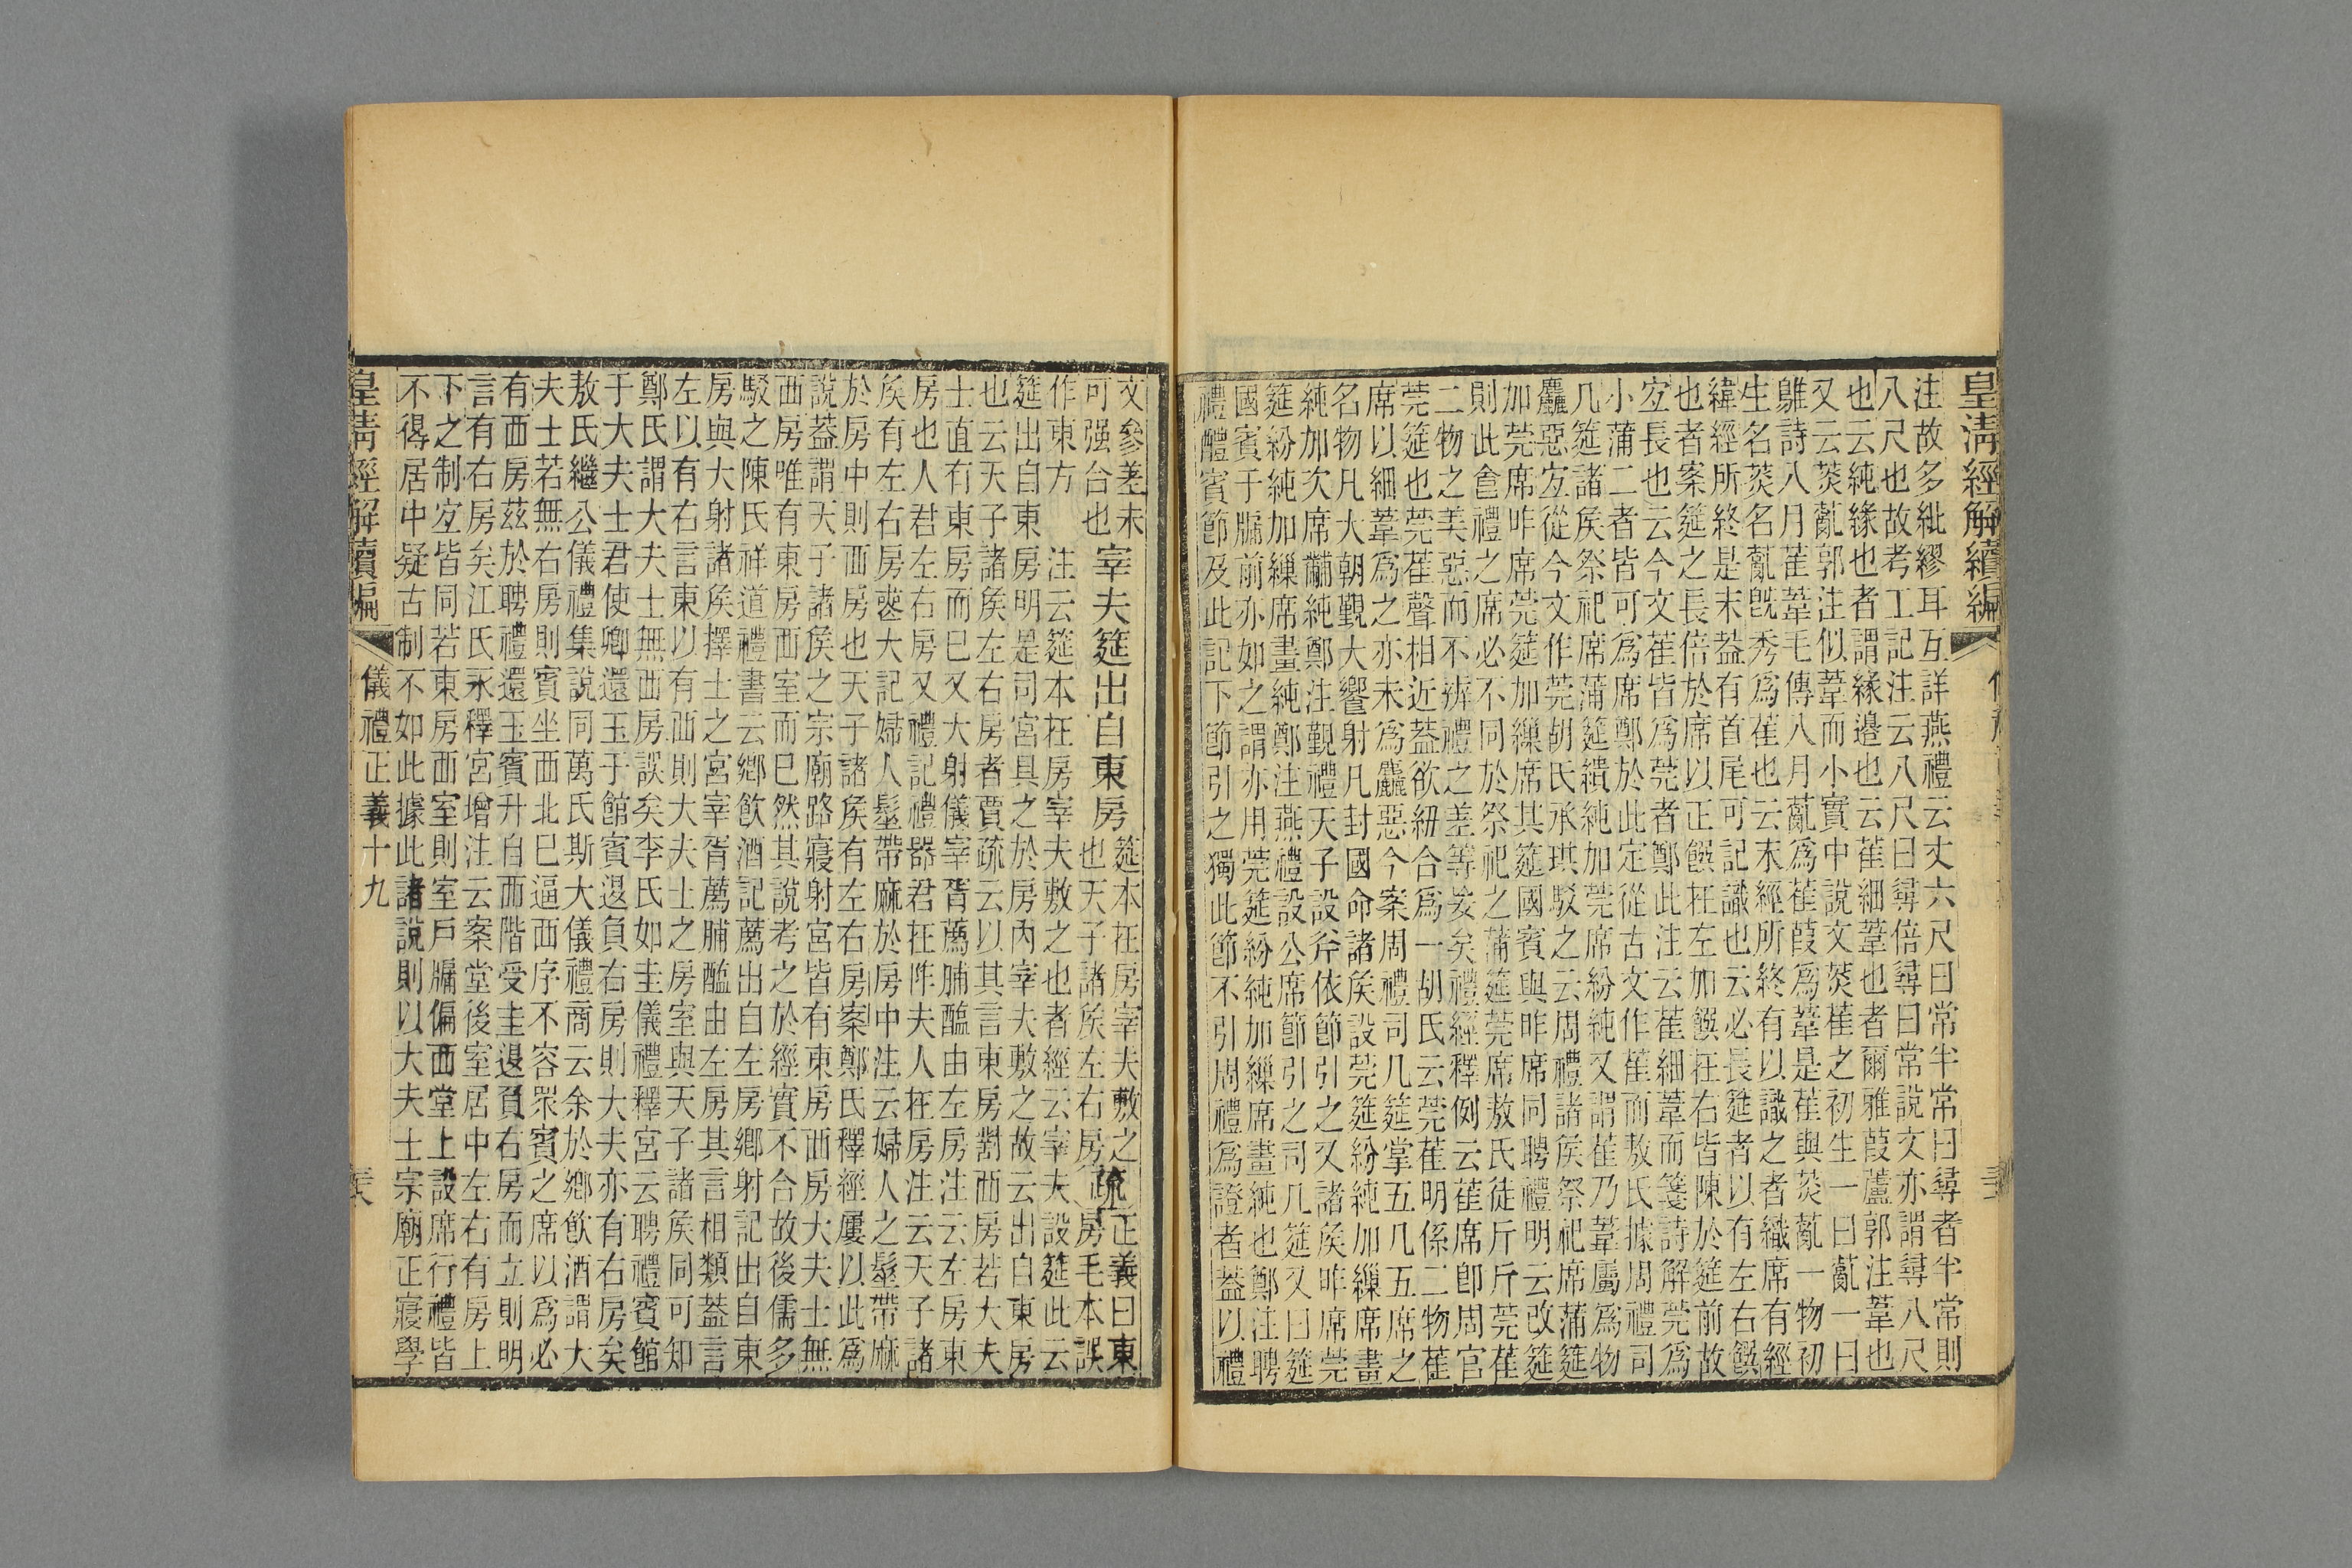 皇清經解續編
注故多紕繆耳互詳燕禮云丈六尺曰常半常曰尋者半常則
八尺也故考工記注云八尺曰尋倍尋曰常說文亦謂尋八尺
也云純緣也者謂緣邊也云萑細葦也者爾雅葭蘆郭注葦也
又云菼薍郭注似葦而小實中說文菼萑之初生一曰薍一曰
鵻詩八月萑葦毛傳八月薍爲萑葭爲葦是萑與菼薍一物初
生名菼名薍旣秀爲萑也云末經所終有以識之者織席有經
緯經所終是末葢有首尾可記識也云必長筵者以有左右饌
也者案筵之長倍於席以正饌在左加饌在右皆陳於筵前故
宐長也云今文萑皆爲莞者鄭此注云萑細葦而箋詩解莞爲
小蒲二者皆可爲席鄭於此定從古文作萑而敖氏據周禮司
几筵諸矦祭祀席蒲筵繢純加莞席紛純又謂萑乃葦屬爲物
麤惡宐從今文作莞胡氏承珙駁之云周禮諸侯祭祀席蒲筵
加莞席昨席莞筵加繅席其筵國賓與昨席同聘禮明云改筵
則此食禮之席必不同於祭祀之蒲筵莞席敖氏徒斤斤莞萑
二物之美惡而不辨禮之差等妄矣禮經釋例云萑席卽周官
莞筵也莞萑聲相近葢欲紐合爲一胡氏云莞萑明係二物萑
席以細葦爲之亦未爲麤惡今案周禮司几筵掌五几五席之
名物凡大朝覲大饗射凡封國命諸矦設莞筵紛純加繅席畫
純加次席黼純鄭注覲禮天子設斧依節引之又諸矦昨席莞
筵紛純加繅席畫純鄭注燕禮設公席節引之司几筵又曰筵
國賓于牖前亦如之謂亦用莞筵紛純加繅席畫純也鄭注聘
禮醴賓節及此記下節引之獨此節不引周禮爲證者葢以禮
文參差未
可强合也
宰夫筵出自東房
筵本在房宰夫敷之
也天子諸矦左右房
疏
正義曰東
房毛本誤
作東方 注云筵本在房宰夫敷之也者經云宰夫設筵此云
筵出自東房明是司宮具之於房內宰夫敷之故云出自東房
也云天子諸矦左右房者賈疏云以其言東房對西房若大夫
士直有東房而已又大射儀宰胥薦脯醢由左房注云左房東
房也人君左右房又禮記禮器君在阼夫人在房注云天子諸
矦有左右房喪大記婦人髽帶麻於房中注云婦人之髽帶麻
於房中則西房也天子諸矦有左右房案鄭氏釋經屢以此爲
說葢謂天子諸侯之宗廟路寢射宮皆有東房西房大夫士無
西房唯有東房西室而已然其說考之於經實不合故後儒多
駁之陳氏祥道禮書云鄉飲酒記薦出自左房鄉射記出自東
房與大射諸矦擇士之宮宰胥薦脯醢由左房其言相類葢言
左以有右言東以有西則大夫士之房室與天子諸矦同可知
鄭氏謂大夫士無西房誤矣李氏如圭儀禮釋宮云聘禮賓館
于大夫士君使卿還玉于館賓退負右房則大夫亦有右房矣
敖氏繼公儀禮集說同萬氏斯大儀禮商云余於鄉飲酒謂大
夫士若無右房則賓坐西北巳逼西序不容眾賓之席以爲必
有西房茲於聘禮還玉賓升自西階受圭退負右房而立則明
言有右房矣江氏永釋宮增注云案堂後室居中左右有房上
下之制宐皆同若東房西室則室戶牖偏西堂上設席行禮皆
不得居中疑古制不如此據此諸說則以大夫士宗廟正寢學
皇清經解續編
儀禮正義十九